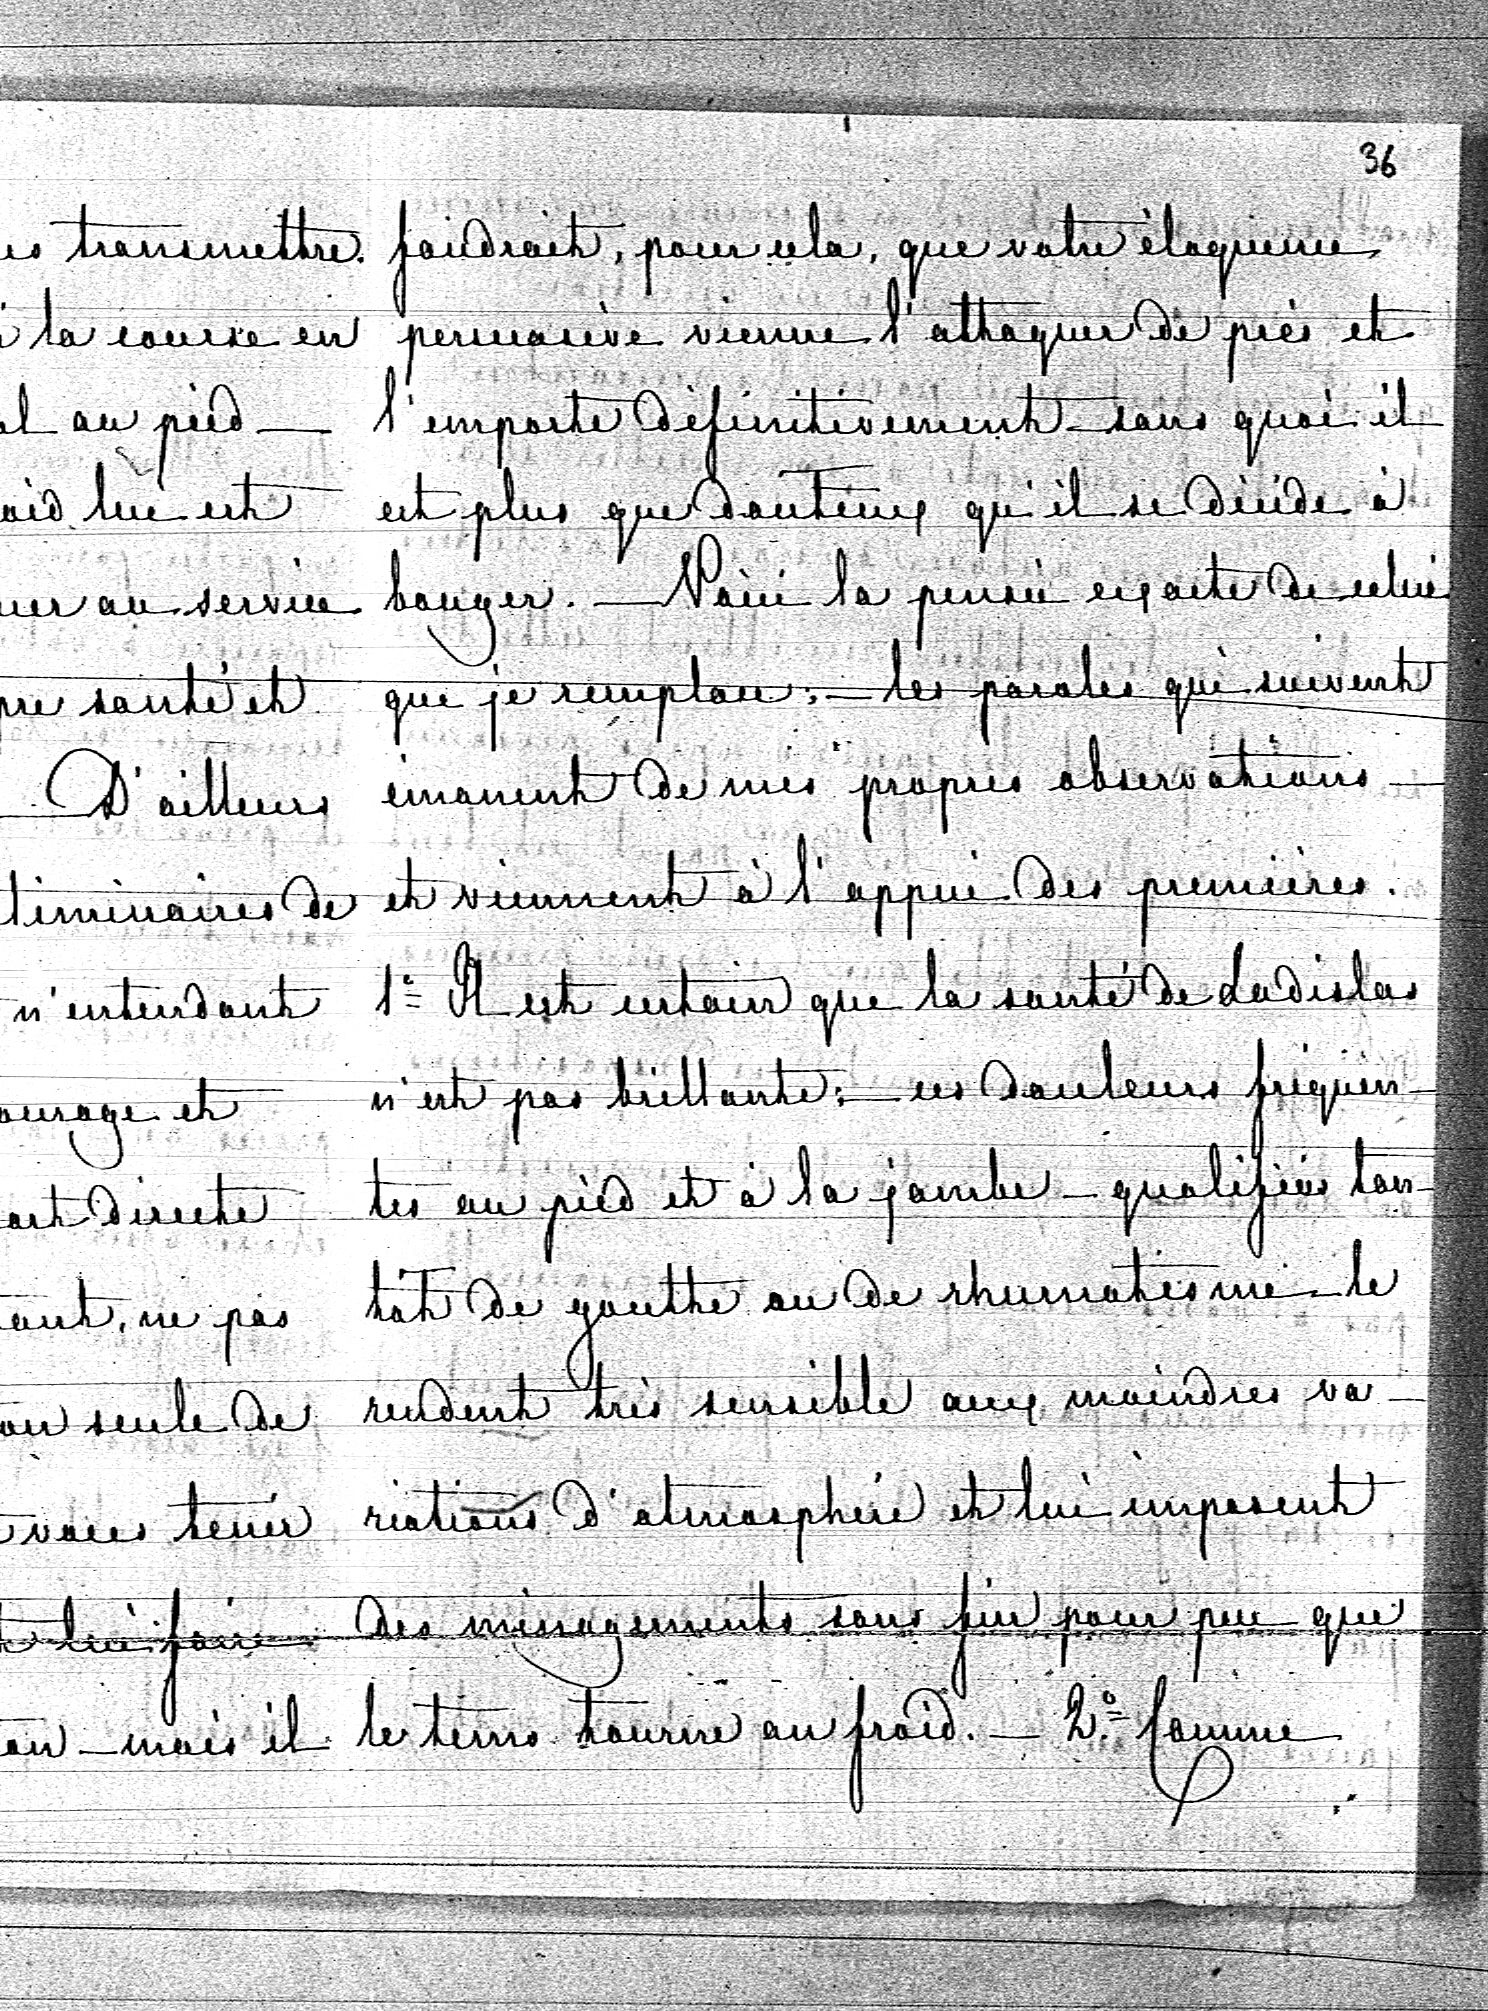 36
es transmettre.
à la course en
al au pied —
oid lui est
uer au service
pre santé et
D'ailleurs
liminaires de
n'entendant
ourage et
art directe
ant, ne pas
on seule de
voies tenir
t lui faire
on — mais il
faudrait, pour cela, que votre éloquence
persuasive vienne l'attaquer de près et
l'emporte définitivement — sans quoi il
est plus que douteux qu'il se décide à
bouger. — Voici la pensée exacte de celui
que je remplace; — les paroles qui suivent
émanent de mes propres observations —
et viennent à l'appui des premières.
1º Il est certain que la santé de Ladislas
n'est pas brillante; — ces douleurs fréquen-
tes au pied et à la jambe — qualifiées tan-
tôt de goutte ou de rhumatisme — le
rendent très sensible aux moindres va-
riations d'atmosphère et lui imposent
des ménagements sans fin pour peu que
le tems tourne au froid. — 2º Comme